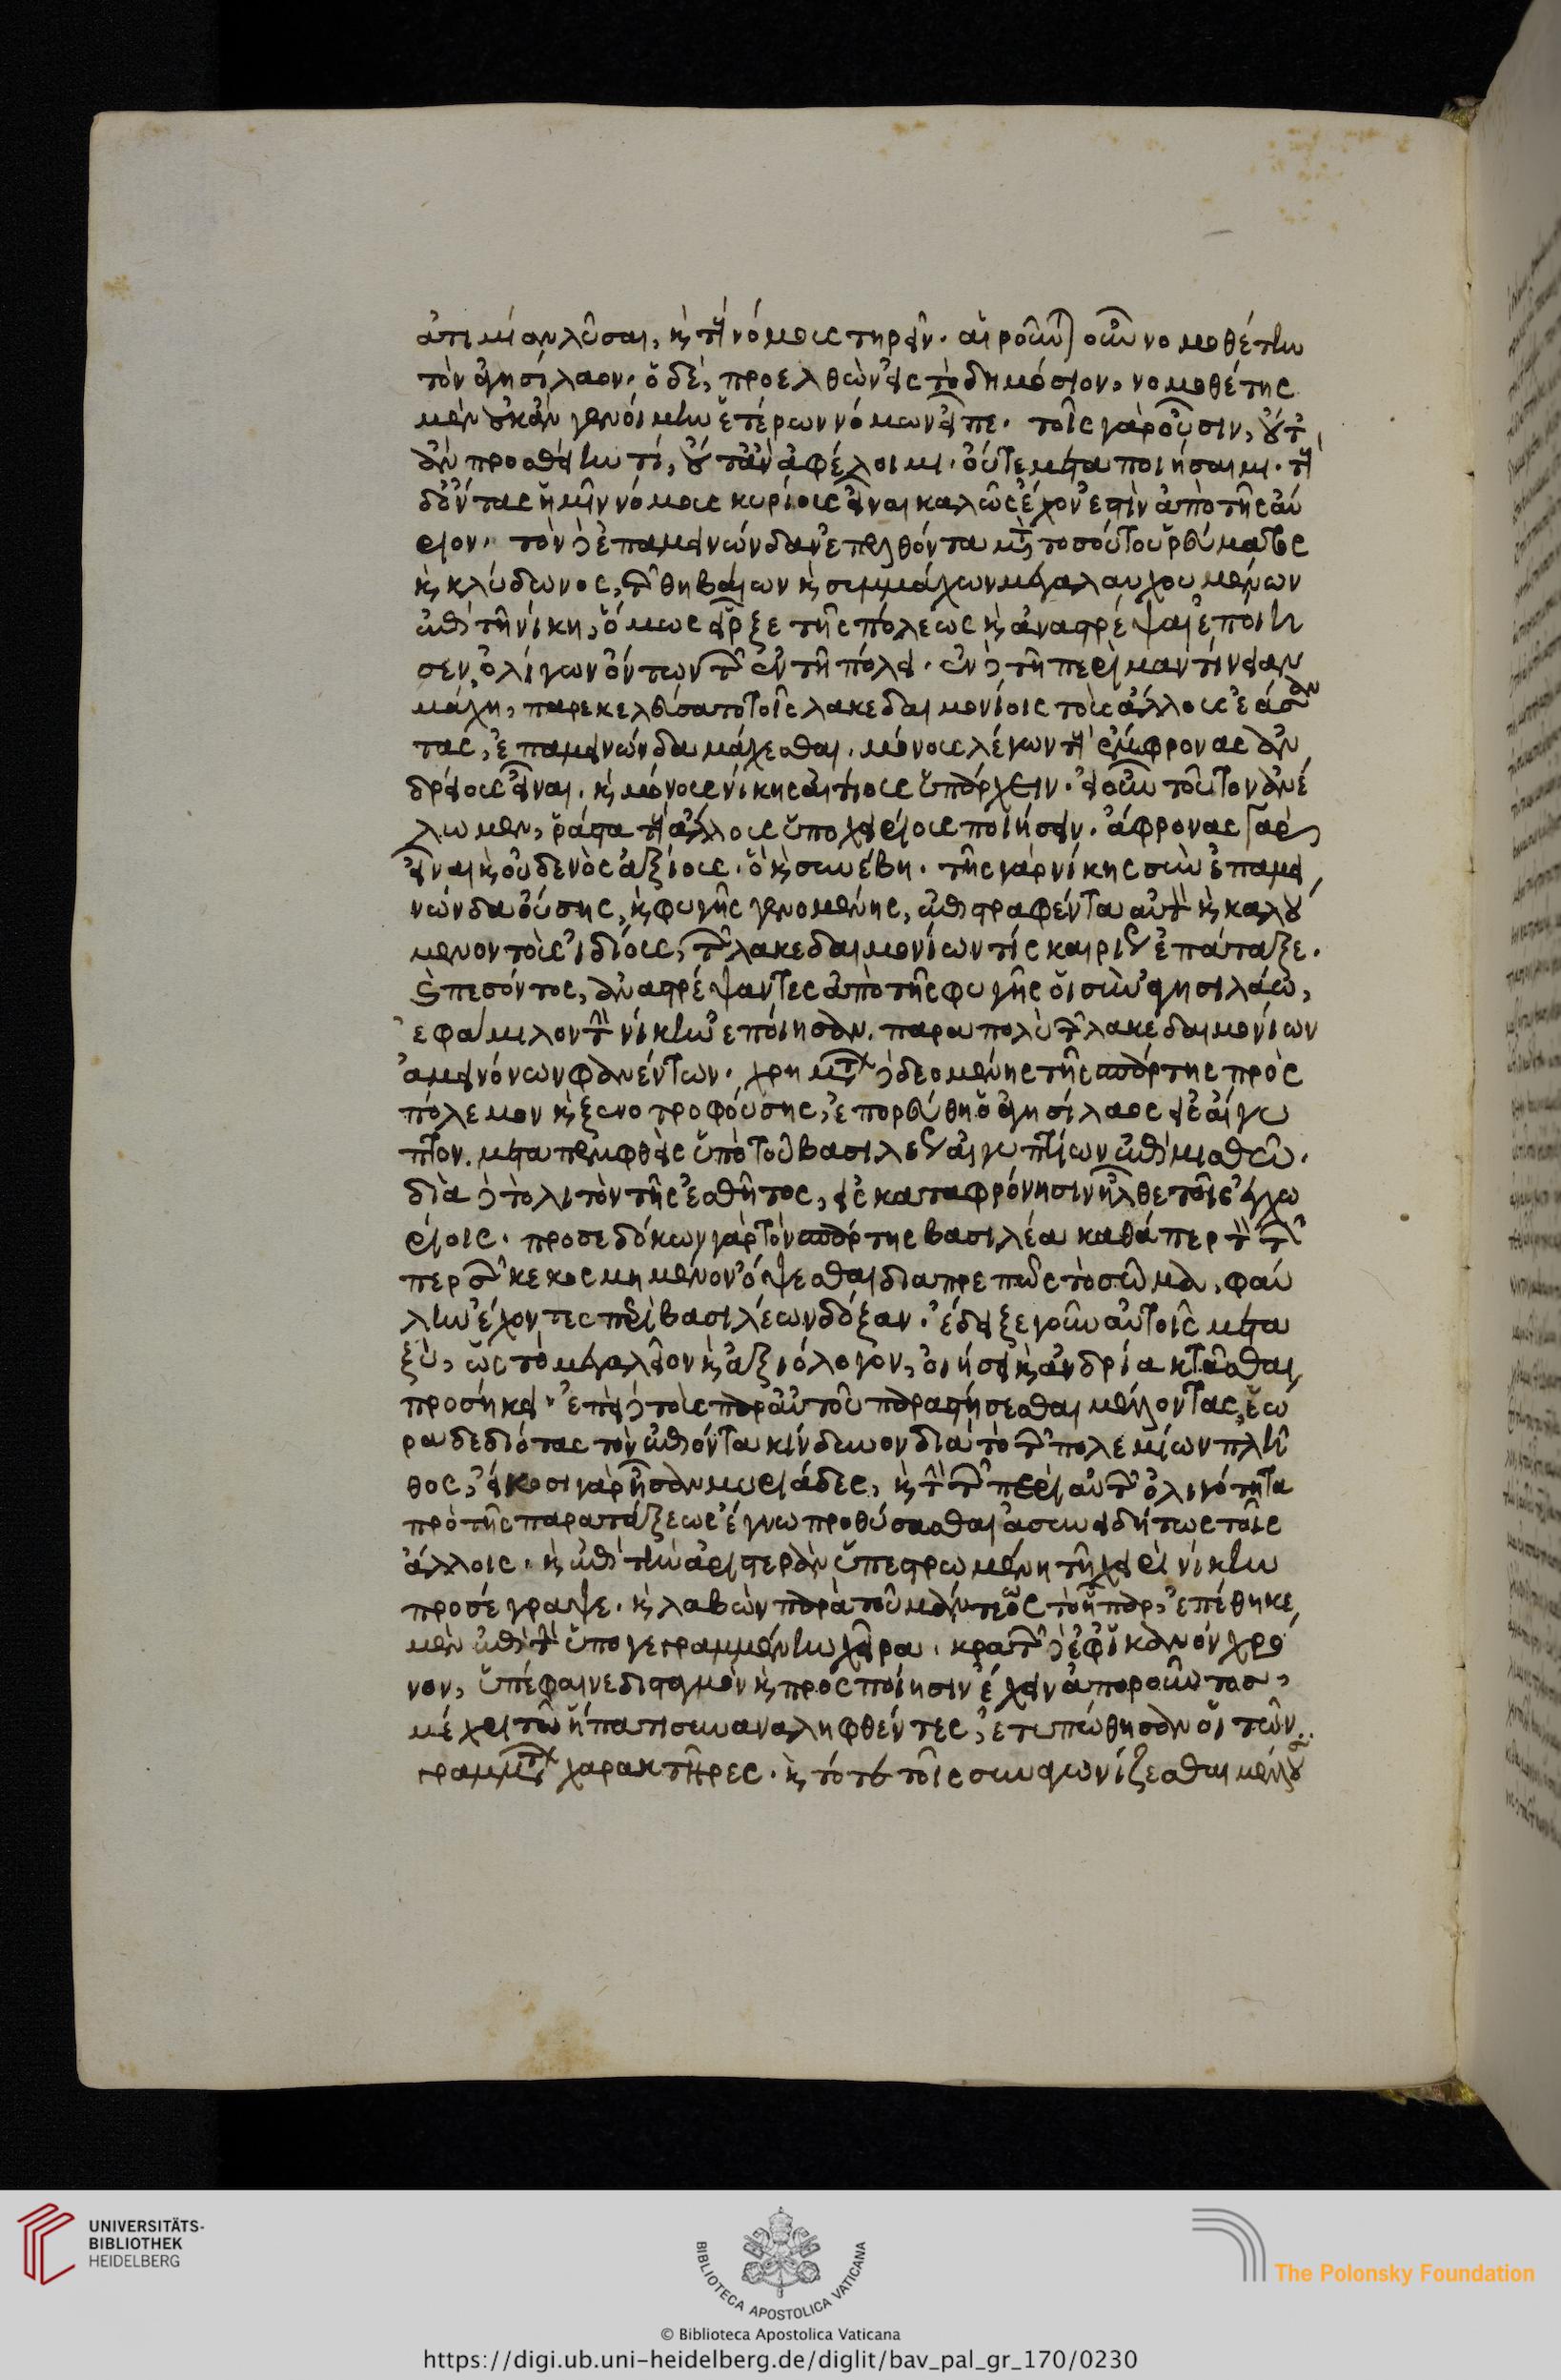 ἀτιμίαν λῦσαι, κὴ τοὺς νόμους τηρεῖν. αἱροῦνται οὖν νομοθέτην
τὸν ἀγησίλαον. ὁ δὲ, προελθὼν εἰς τὸ δημόσιον, νομοθέτης
μὲν οὐκ ἂν γενοίμην ἑτέρων νόμων εἶπε. τοῖς γὰρ οὖσιν, οὔτ'
ἂν προσθείην τί, οὔτ' ἂν ἀφέλοιμι. οὔτε μεταποιήσαιμι. τοὺς
δ' ὄντας ἡμῖν νόμους κυρίους εἶναι καλῶς ἔχον ἐστὶν ἀπὸ τῆς αὔ
ριον. τὸν δὲ ἐπαμεινώνδαν ἐπελθόντα μετὰ τοσούτου ῥεύματος
καὶ κλύδωνος, τῶν θηβαίων καὶ συμμάχων μεγαλαυχουμένων
ἐπὶ τῇ νίκῃ, ὅμως εἶρξε τῆς πόλεως καὶ ἀναστρέψαι ἐποίη
σεν, ὀλίγων ὄντων τῶν ἐν τῇ πόλει. ἐν δὲ τῇ περὶ μαντίνειαν
μάχῃ, παρεκελεύσατο τοῖς λακεδαιμονίοις τοὺς ἄλλους ἐάσαν
τας, ἐπαμεινώνδᾳ μάχεσθαι. μόνους λέγων τοὺς ἔμφρονας ἀν
δρείους εἶναι. καὶ μόνους νίκης αἰτίους ὑπάρχειν. ἐὰν οὖν τοῦτον ἀνέ
λωμεν, ῥᾷστα τοὺς ἄλλους ὑποχειρίους ποιήσειν. ἄφρονας γὰρ,
εἶναι καὶ οὐδενὸς ἀξίους. ὃ καὶ συνέβη. τῆς γὰρ νίκης σὺν ἐπαμει
νώνδᾳ οὔσης, καὶ φυγῆς γενομένης, ἐπιστραφέντα αὐτὸν καὶ καλού
μενον τοὺς ἰδίους, τῶν λακεδαιμονίων τίς καιρίου ἐπάταξε.
οὗ πεσόντος, ἀναστρέψαντες ἀπὸ τῆς φυγῆς οἱ σὺν ἀγησιλάῳ,
ἐφάμιλλον τὴν νίκην ἐποίησαν. παραπολὺ τῶν λακεδαιμονίων
ἀμεινόνων φανέντων. χρημάτων δὲ δεομένης τῆς σπάρτης πρὸς
πόλεμον καὶ ξενοτροφούσης, ἐπορεύθη ὁ ἀγησίλαος εἰς αἴγυ
πτον. μεταπεμφθεὶς ὑπὸ τοῦ βασιλέως αἰγυπτίων ἐπὶ μισθῷ.
διὰ δὲ τὸ λιτὸν τῆς ἐσθῆτος, εἰς καταφρόνησιν ἦλθε τοῖς ἐγχω
ρίοις. προσεδόκων γὰρ τὸν σπάρτης βασιλέα καθάπερ τὸν τῶν
περσῶν κεκοσμημένον ὄψεσθαι διαπρεπῶς τὸ σῶμα, φαύ
λην ἔχοντες περὶ βασιλέων δόξαν. ἔδειξε γοῦν αὐτοῖς μετα
ξὺ, ὡς τὸ μεγαλεῖον καὶ ἀξιόλογον, συνέσει καὶ ἀνδρίᾳ κτᾶσθαι,
προσήκει. ἐπεὶ δὲ τοὺς παρ' αὐτοῦ παραστήσεσθαι μέλλοντας, ἑώ
ρα δεδιότας τὸν ἐπιόντα κίνδυνον διὰ τὸ τῶν πολεμίων πλῆ
θος, εἴκοσι γὰρ ἦσαν μυριάδες, καὶ τὴν τῶν περὶ αὐτὸν ὀλιγότητα
πρὸ τῆς παρατάξεως ἔγνω προθύσασθαι ἀσυνειδήτως τοῖς
ἄλλοις. καὶ ἐπὶ τὴν ἀριστερὰν ὑπεστρωμένῃ τῇ χειρὶ νίκην
προσέγραψε. καὶ λαβὼν παρὰ τοῦ μάντεως τὸ ἧπαρ, ἐπέθηκε,
μὲν ἐπὶ τὴν ὑπογεγραμμένην χεῖρα. κρατῶν δὲ ἐφ' ἱκανὸν χρό
νον, ὑπέφαινε δισταγμὸν καὶ προσποίησιν ἔχειν ἀποροῦντος,
μέχρι τῷ ἥπατι συναναληφθέντες, ἐτυπώθησαν οἱ τῶν
γραμμάτων χαρακτῆρες. καὶ τότε τοῖς συναγωνίζεσθαι μέλλου
UNIVERSITÄTS-
BIBLIOTHEK
HEIDELBERG
BIBLIOTECA APOSTOLICA VATICANA
The Polonsky Foundation
© Biblioteca Apostolica Vaticana
https://digi.ub.uni-heidelberg.de/diglit/bav_pal_gr_170/0230